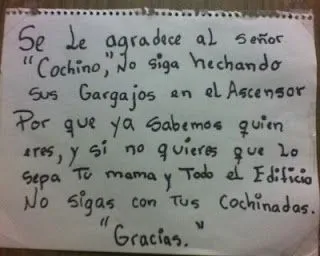 Se Le agradece al señor
"Cochino," No siga hechando
sus Gargajos en el Ascensor
Por que ya sabemos quien
eres, y si no quieres que Lo
sepa Tu mama y Todo el Edificio
No sigas con Tus Cochinadas.
"Gracias."